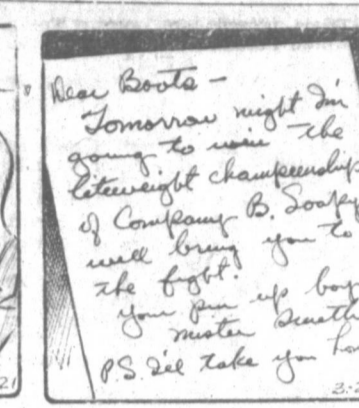 Dear Boots –
Tomorrow night I'm
going to win the
liteweight champeenship
of Company B. Soapy
will bring you to
the fight.
your pin up boy
mister Smith
P.S. I'll take you
21